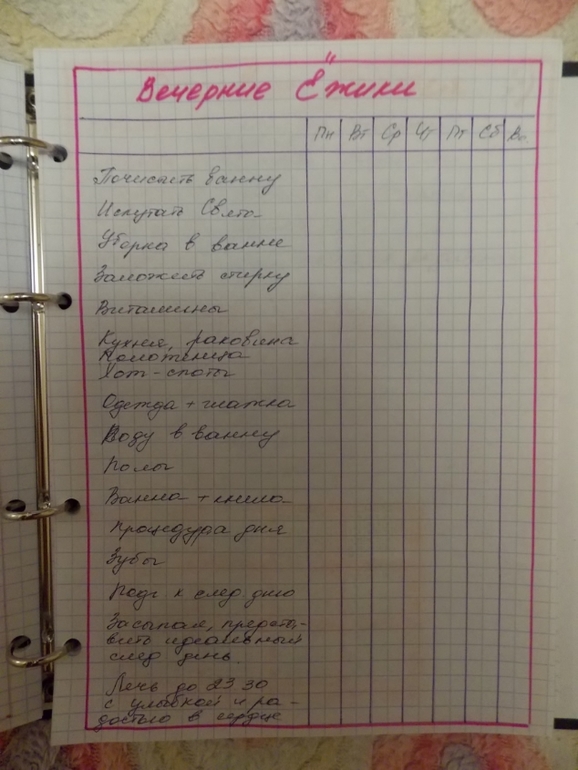 Вечерние Ёжики
Пн Вт Ср Чт Пт Сб Вс
Почистить ванну
Искупать Свята
Уборка в ванне
Заложить стирку
Витамины
Кухня, раковина
Полотенца
Хот-споты
Одежда + глажка
Воду в ванну
Полы
Ванна + книга
Процедура дня
Зубы
Подг к след дню
Засыпая, предста-
вить идеальный
след день
Лечь до 23 30
с улыбкой и ра-
достью в сердце